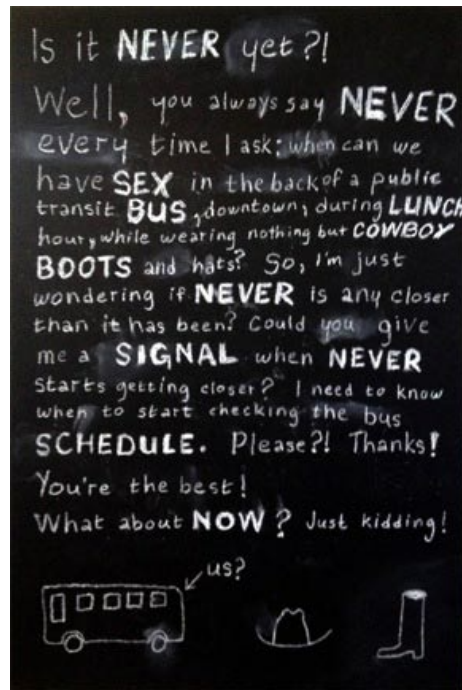 Is it NEVER yet?!
Well, you always say NEVER
every time I ask: when can we
have SEX in the back of a public
transit BUS, downtown, during LUNCH
hour, while wearing nothing but COWBOY
BOOTS and hats? So, I'm just
wondering if NEVER is any closer
than it has been? Could you give
me a SIGNAL when NEVER
starts getting closer? I need to know
when to start checking the bus
SCHEDULE. Please?! Thanks!
You're the best!
What about NOW? Just kidding!
us?